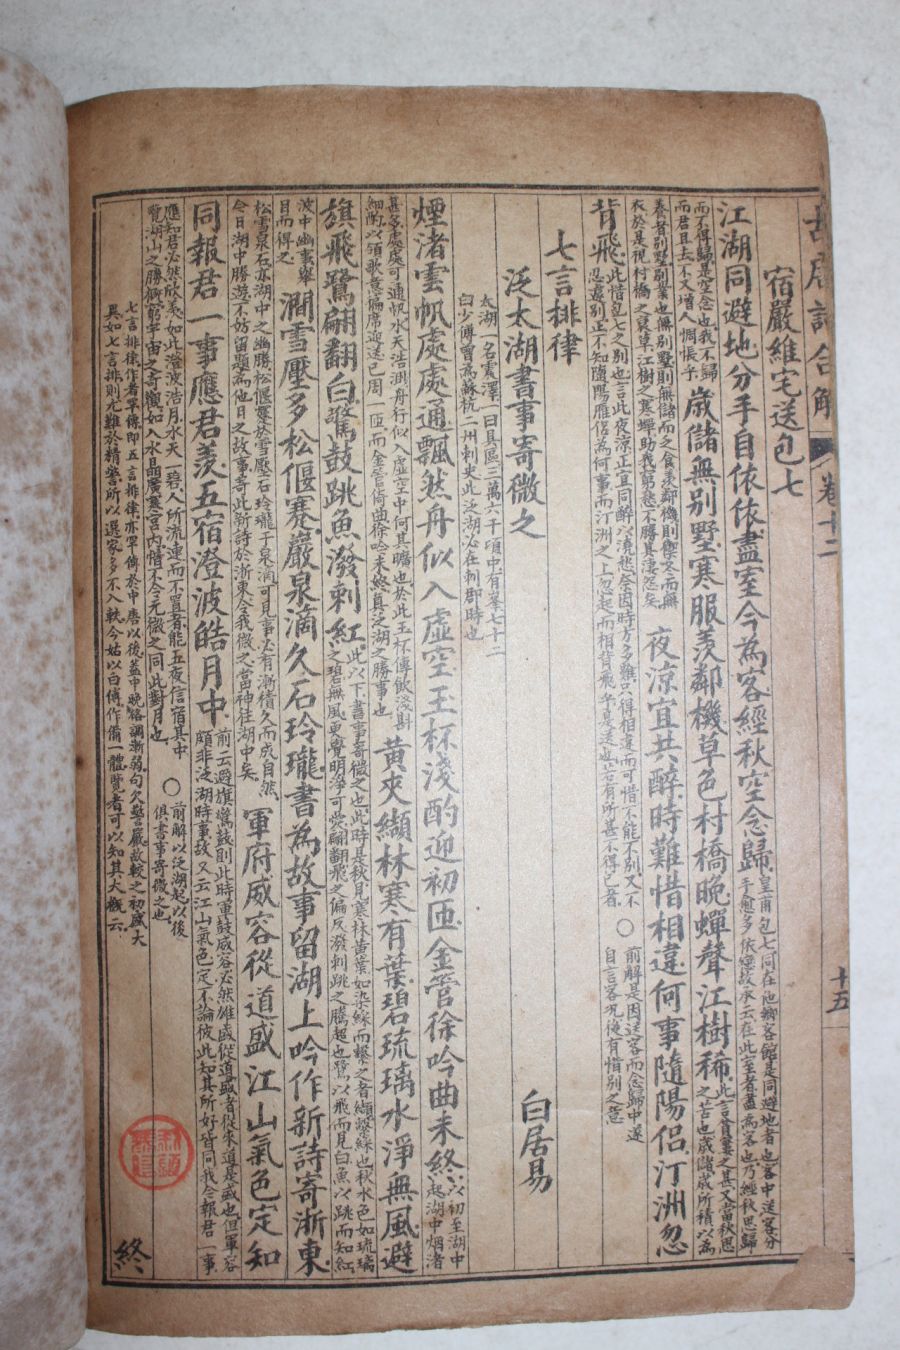 古唐詩合解　卷十二　十五
宿嚴維宅送包七
江湖同避地分手自依依盡室今為客經秋空念歸
皇甫包七同在他鄉客館是同避地者也客中送客分
手愈多依戀故承云在此室者盡為客也乃經秋思歸
而不得歸是空念也我不歸
而君且去不又增人惆悵乎
歲儲無別墅寒服羨鄰機草色村橋晚蟬聲江樹稀
此言貧窶之甚又當秋思
之苦也歲儲歲所積以為
養者別墅別業也無別墅則無儲而乏食羨鄰機則寒而無
衣於是視村橋之衰草江樹之寒蟬助我窮愁不勝其淒然矣
夜涼宜共醉時難惜相違何事隨陽侶汀洲忽
背飛
此惜皇七之別也言此夜涼正宜同醉以澆愁奈因時方多難只得相違而可惜不能不別又不
忍遽別正不知隨陽雁侶為何事而汀洲之上忽起而相背飛乎是送也若有所甚不得已者
〇
前解是因送客而念歸中遂
自言客況後有惜別之意
七言排律
泛太湖書事寄微之　白居易
太湖一名震澤一曰具區三萬六千頃中有峯七十二
白少傅曾為蘇杭二州刺史此泛湖必在刺郡時也
煙渚雲帆處處通飄然舟似入虛空玉杯淺酌迎初匝金管徐吟曲未終
以初至湖中
起湖中烟渚
甚多處處可通帆水天浩淵舟行似入虛空中何其曠也於此玉杯傳飲淺斟
細酌以領歌意綺席遞送已周一匝而金管倚曲徐吟未終真泛湖之勝事也
黃夾纈林寒有葉碧琉璃水淨無風避
旗飛鷺翩翻白驚鼓跳魚潑剌紅
此以下書事寄微之也此時是秋日寒林黃葉如染綵而繫之者纈撮綵也秋水色如琉璃
之碧無風更覺明淨可愛翩翻飛之偏反潑剌跳之騰起也鷺以飛而見白魚以跳而知紅
波中幽事舉
目而得之
澗雪壓多松偃蹇巖泉滴久石玲瓏書為故事留湖上吟作新詩寄浙東
松雪泉石亦湖中之幽勝松偃蹇於雪壓石玲瓏于泉滴可見事必有漸積久而成自然
今日湖中勝遊不妨留題為他日之故事寄此新詩於浙東令我微之當神往湖中矣
軍府威容從道盛江山氣色定知
同報君一事應君羨五宿澄波皓月中
前云避旗驚鼓則此時軍鼓威容必然雄盛從道盛者從來道是盛也但軍容
頗非泛湖時事故又云江山氣色定不論彼此知其所好皆同我今報君一事
應知君必然欣羨如此澄波浩月水天一碧人所流連而不置者能五夜信宿其中
覽湖山之勝槩窮宇宙之奇觀如入水晶廣寒宮內惜不令元微之同此對月也
〇
前解以泛湖起以後
俱書事寄微之也
七言排律作者罕傳即五言排律亦罕傳於中唐以後蓋中晚格調漸弱句欠警嚴故較之初盛大
異如七言排則尤難於精當所以選家多不入軼今姑以白傅作備一體覽者可以知其大概云
終